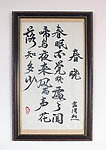 春晓
春眠不觉晓处处闻
啼鸟夜来风雨声花
落知多少
孟浩然